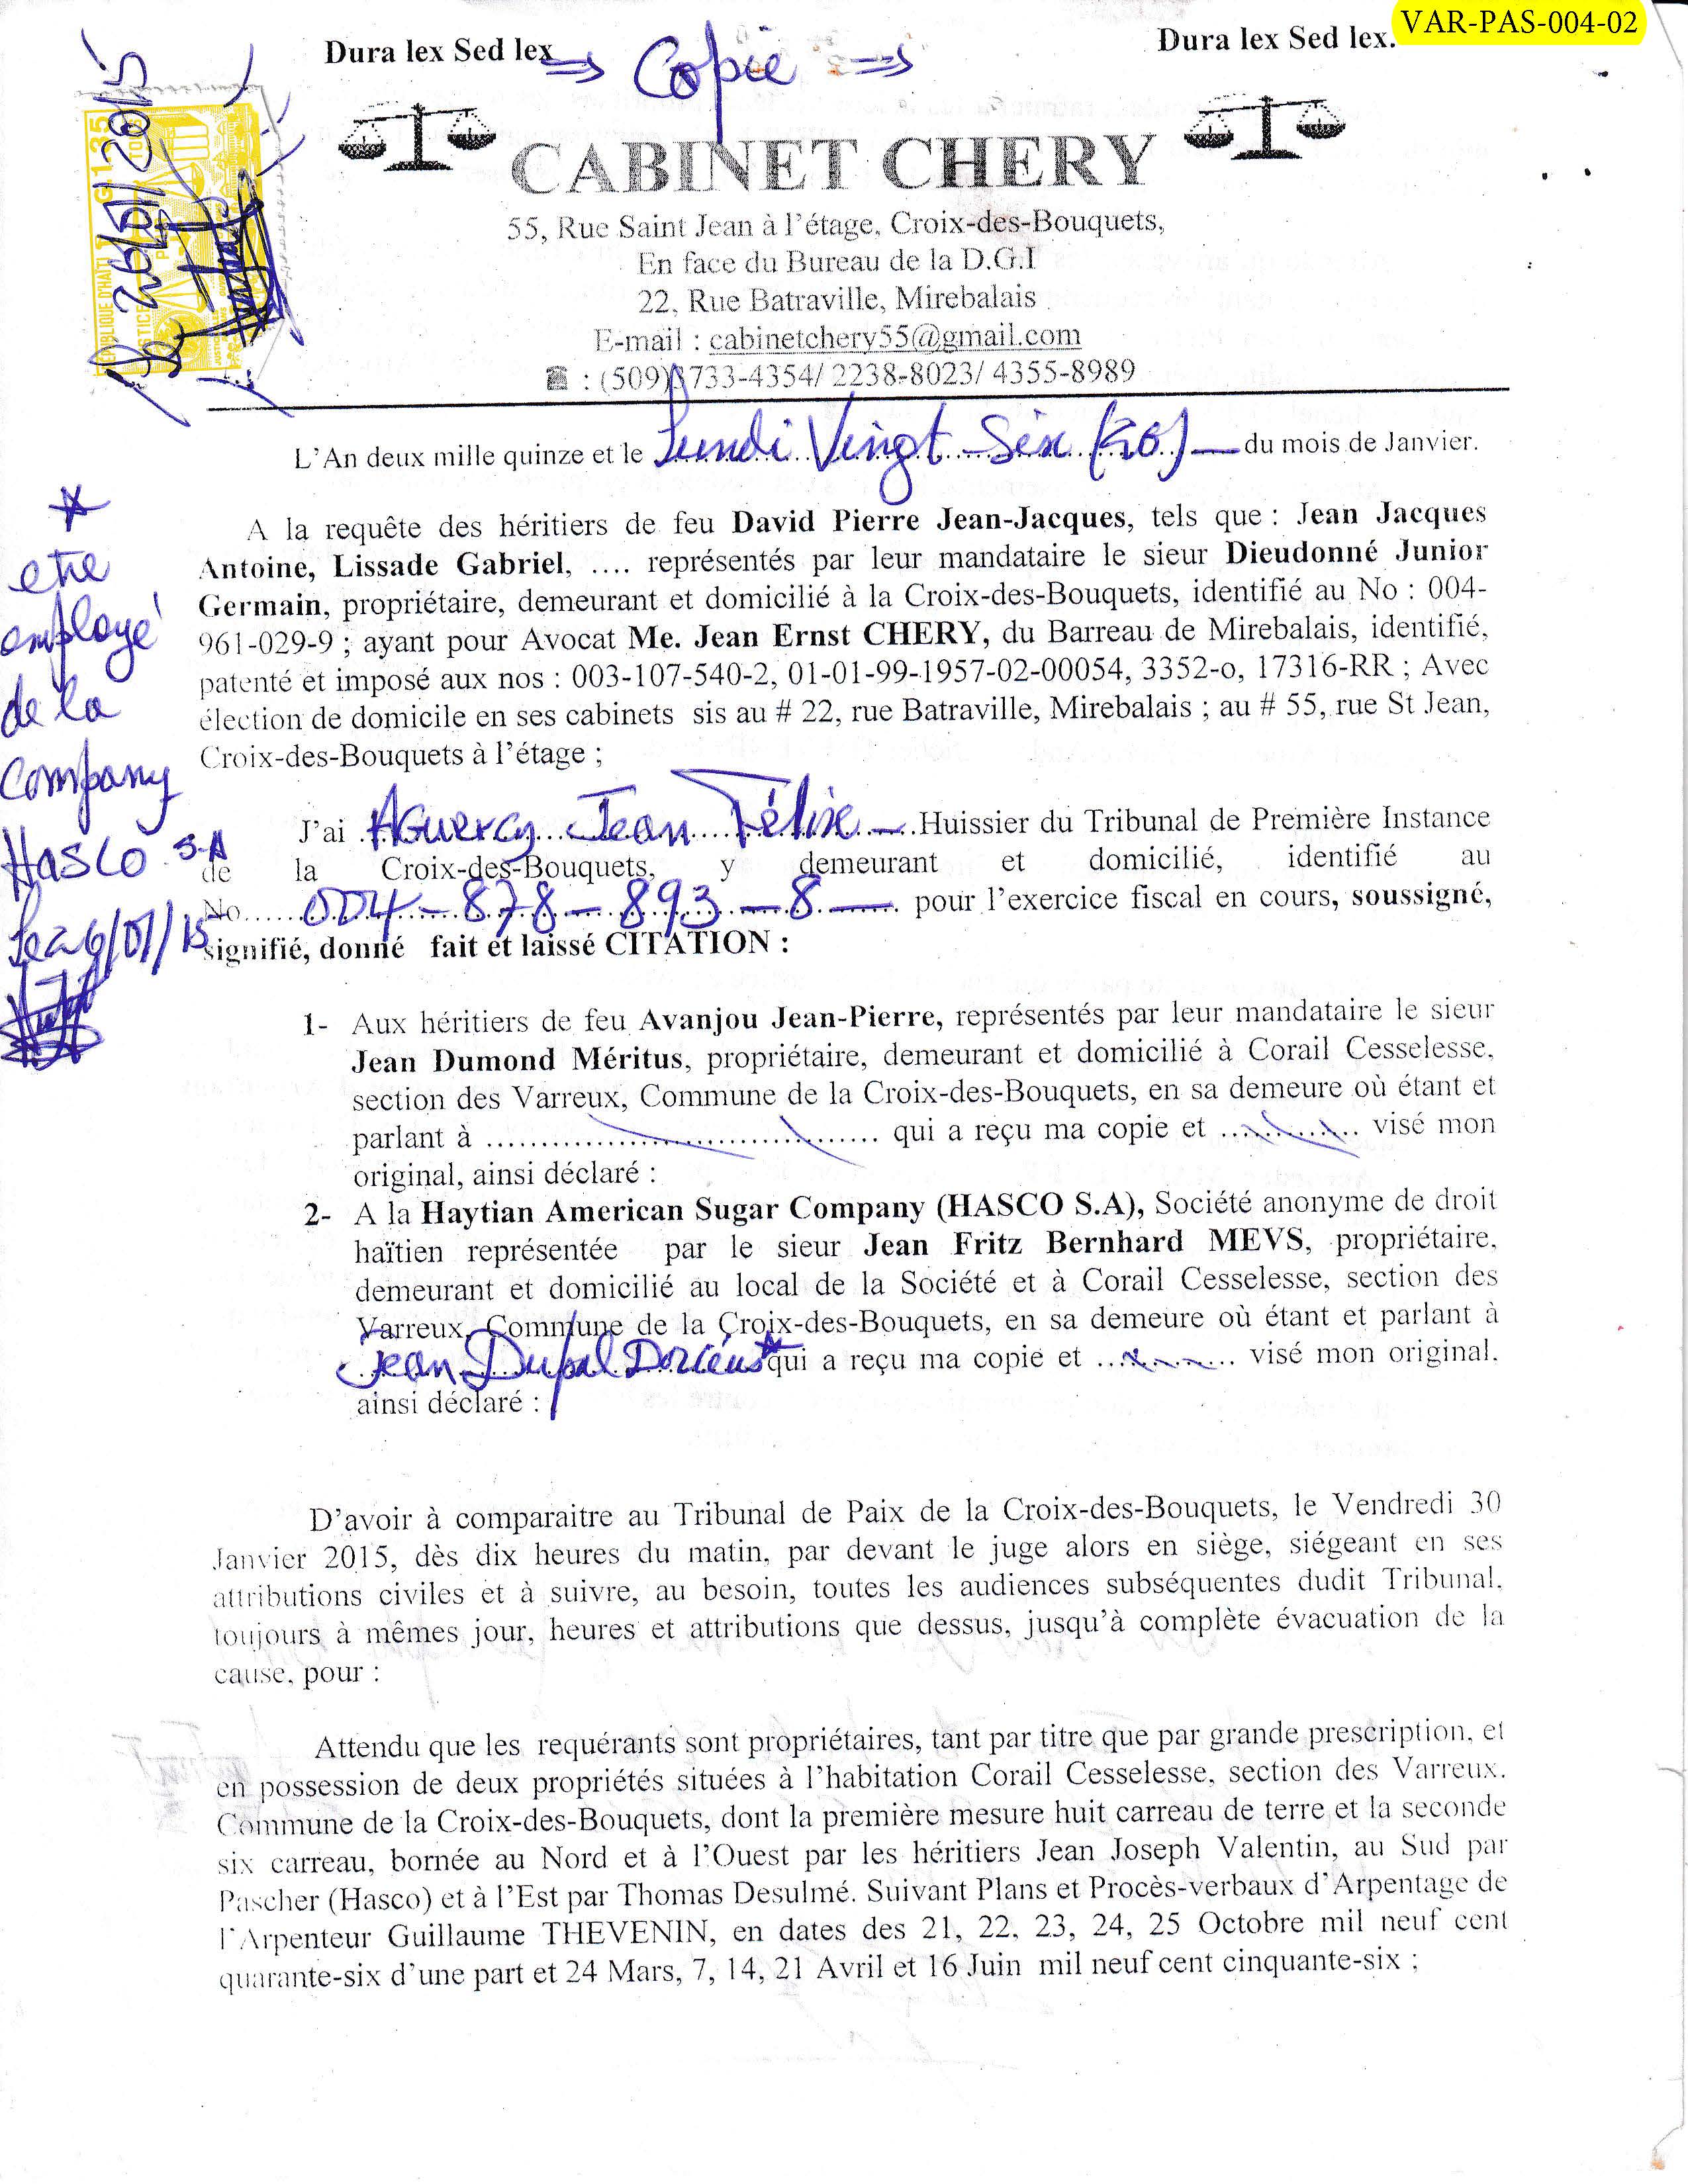 VAR-PAS-004-02
Dura lex Sed lex
Copie
Dura lex Sed lex.
CABINET CHERY
55, Rue Saint Jean à l'étage, Croix-des-Bouquets,
En face du Bureau de la D.G.I
22, Rue Batraville, Mirebalais
E-mail : cabinetchery55@gmail.com
☎ : (509)3733-4354/ 2238-8023/ 4355-8989
G.1.35
RÉPUBLIQUE D'HAÏTI
26/01/2015
L'An deux mille quinze et le Lundi Vingt-Six (26) du mois de Janvier.
A la requête des héritiers de feu David Pierre Jean-Jacques, tels que : Jean Jacques
Antoine, Lissade Gabriel, .... représentés par leur mandataire le sieur Dieudonné Junior
Germain, propriétaire, demeurant et domicilié à la Croix-des-Bouquets, identifié au No : 004-
961-029-9 ; ayant pour Avocat Me. Jean Ernst CHERY, du Barreau de Mirebalais, identifié,
patenté et imposé aux nos : 003-107-540-2, 01-01-99-1957-02-00054, 3352-o, 17316-RR ; Avec
élection de domicile en ses cabinets sis au # 22, rue Batraville, Mirebalais ; au # 55, rue St Jean,
Croix-des-Bouquets à l'étage ;
* etre
employé
de la
Company
HASCO S.A
le 26/01/15
J'ai Aguercy Jean Félix Huissier du Tribunal de Première Instance
de la Croix-des-Bouquets, y demeurant et domicilié, identifié au
No 004-878-893-8 pour l'exercice fiscal en cours, soussigné,
signifié, donné fait et laissé CITATION :
1- Aux héritiers de feu Avanjou Jean-Pierre, représentés par leur mandataire le sieur
Jean Dumond Méritus, propriétaire, demeurant et domicilié à Corail Cesselesse,
section des Varreux, Commune de la Croix-des-Bouquets, en sa demeure où étant et
parlant à .................................... qui a reçu ma copie et ............. visé mon
original, ainsi déclaré :
2- A la Haytian American Sugar Company (HASCO S.A), Société anonyme de droit
haïtien représentée par le sieur Jean Fritz Bernhard MEVS, propriétaire,
demeurant et domicilié au local de la Société et à Corail Cesselesse, section des
Varreux, Commune de la Croix-des-Bouquets, en sa demeure où étant et parlant à
Jean Dupal Dorcéus* qui a reçu ma copie et ............. visé mon original,
ainsi déclaré :
D'avoir à comparaitre au Tribunal de Paix de la Croix-des-Bouquets, le Vendredi 30
Janvier 2015, dès dix heures du matin, par devant le juge alors en siège, siégeant en ses
attributions civiles et à suivre, au besoin, toutes les audiences subséquentes dudit Tribunal,
toujours à mêmes jour, heures et attributions que dessus, jusqu'à complète évacuation de la
cause, pour :
Attendu que les requérants sont propriétaires, tant par titre que par grande prescription, et
en possession de deux propriétés situées à l'habitation Corail Cesselesse, section des Varreux,
Commune de la Croix-des-Bouquets, dont la première mesure huit carreau de terre et la seconde
six carreau, bornée au Nord et à l'Ouest par les héritiers Jean Joseph Valentin, au Sud par
Pascher (Hasco) et à l'Est par Thomas Desulmé. Suivant Plans et Procès-verbaux d'Arpentage de
l'Arpenteur Guillaume THEVENIN, en dates des 21, 22, 23, 24, 25 Octobre mil neuf cent
quarante-six d'une part et 24 Mars, 7, 14, 21 Avril et 16 Juin mil neuf cent cinquante-six ;